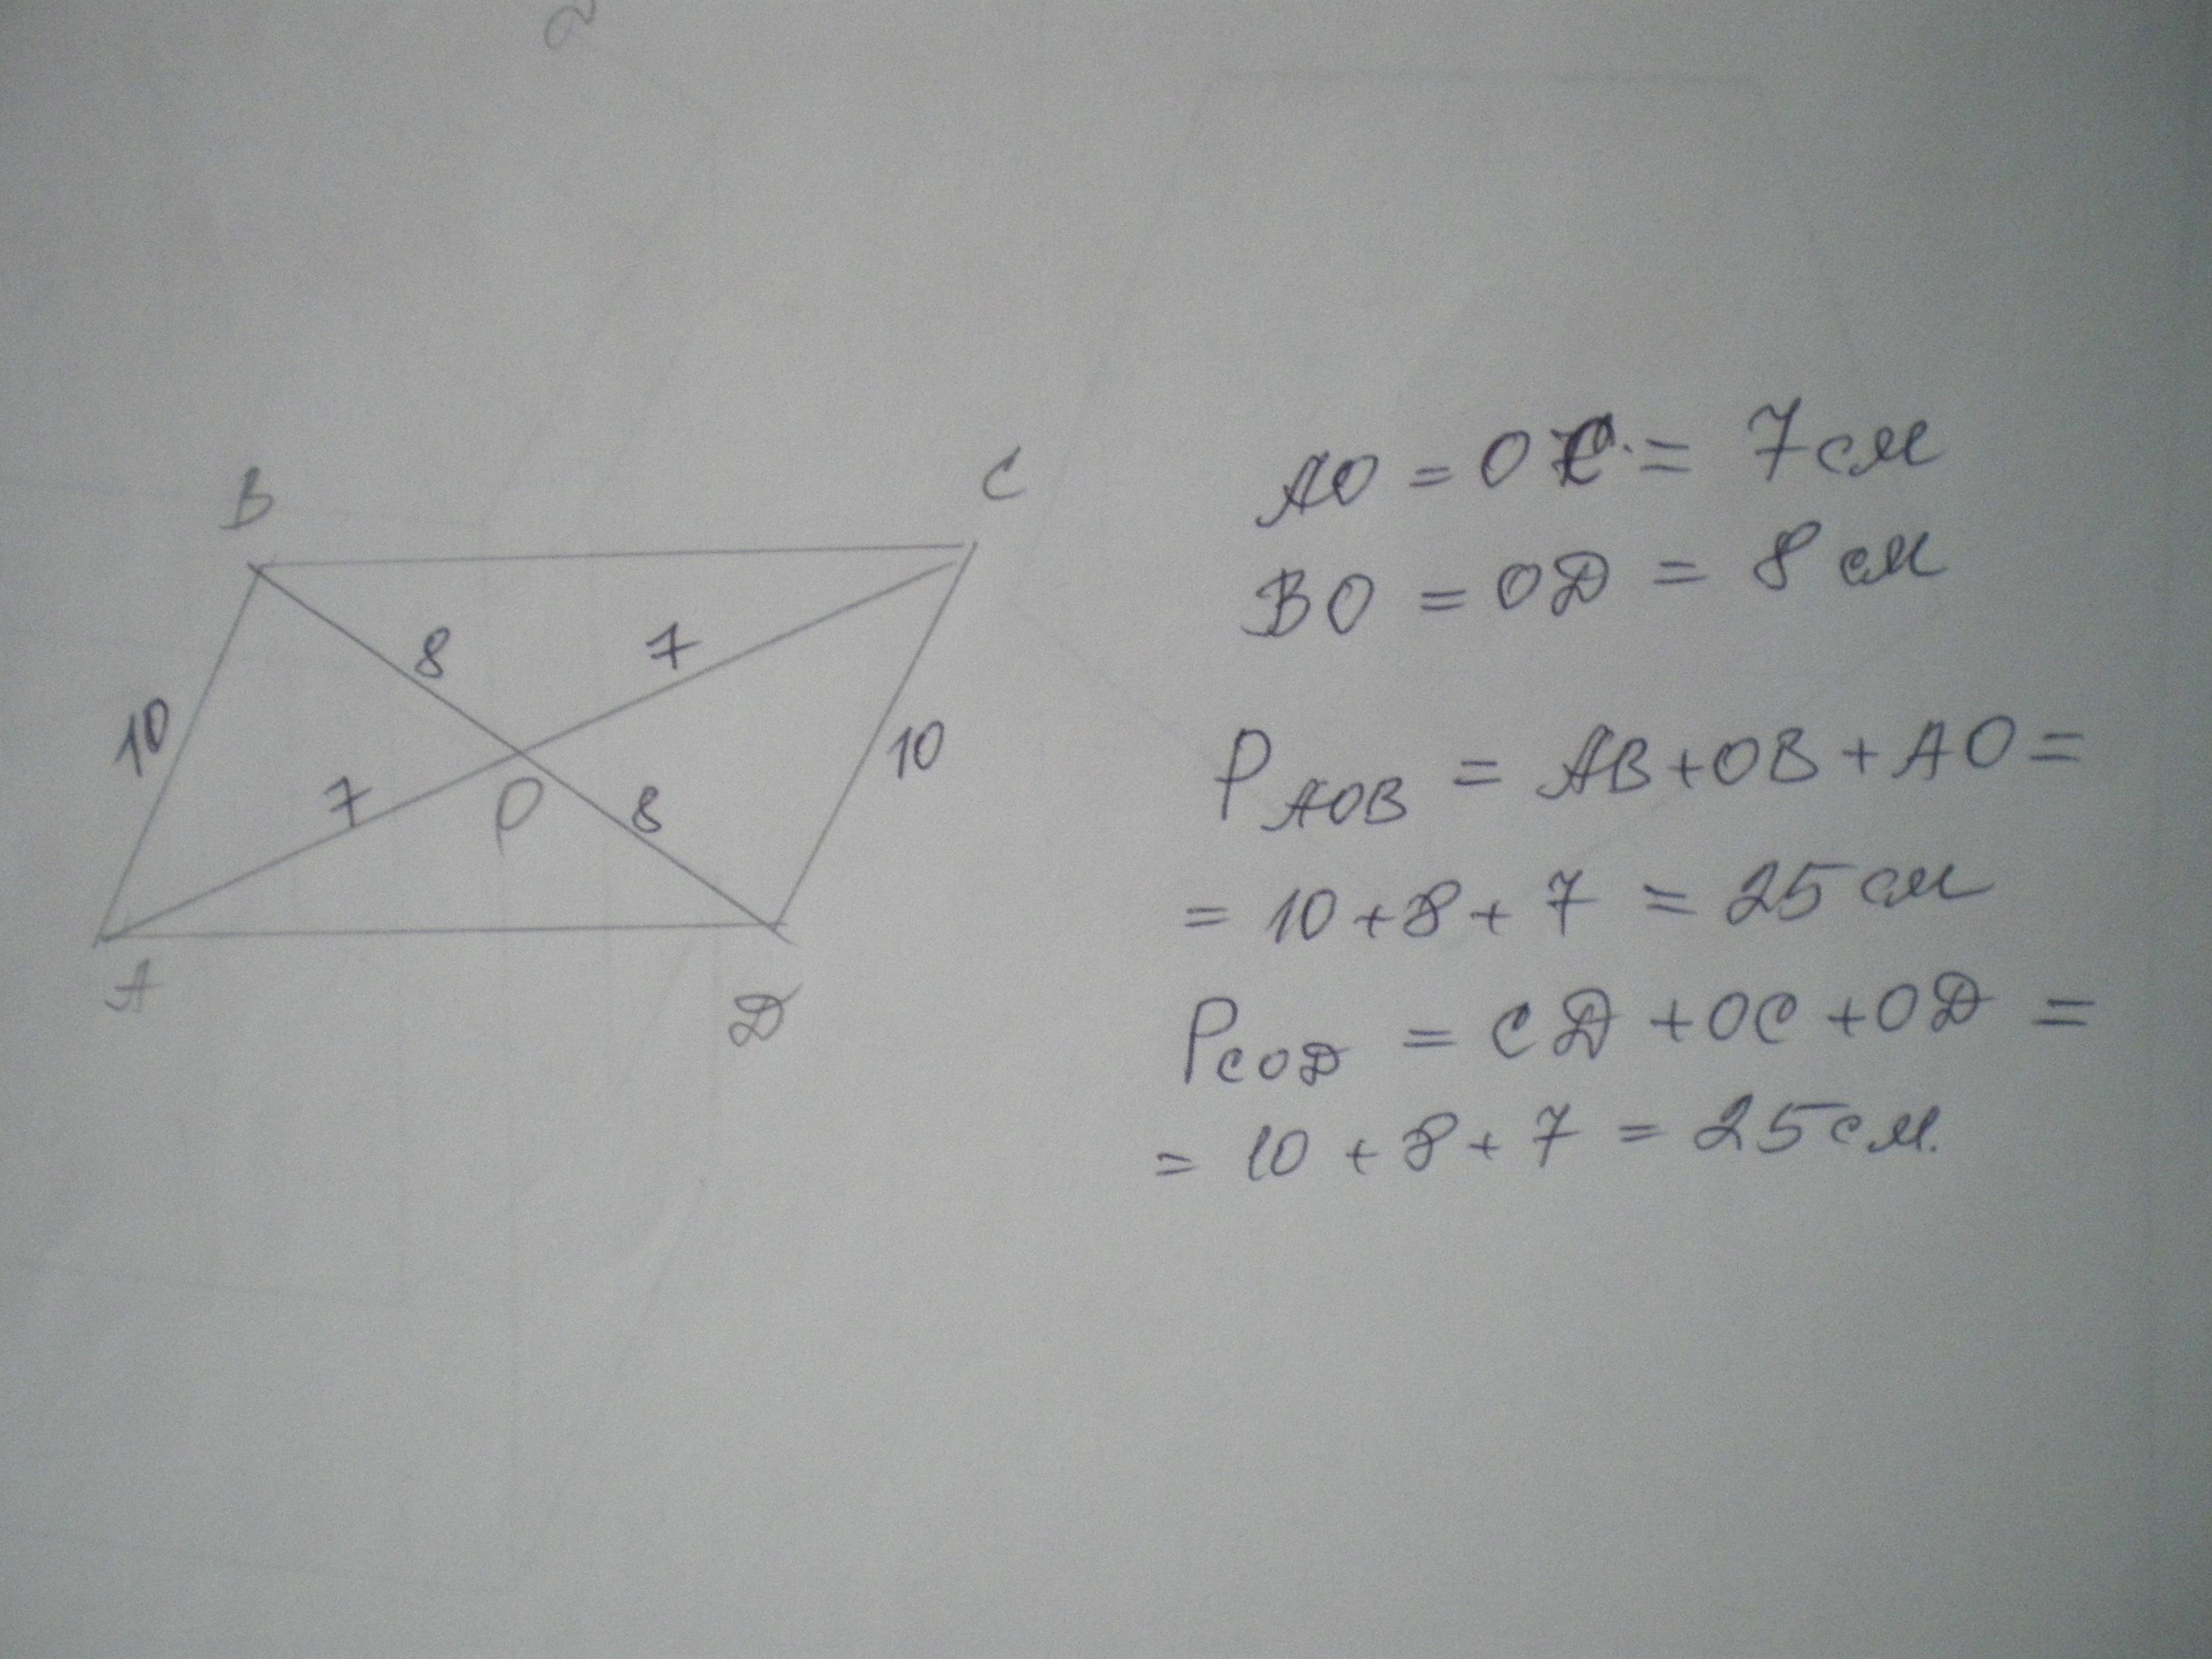 B
C
8
7
10
10
7
O
8
A
D
AO = OC = 7 см
BO = OD = 8 см
P AOB = AB + OB + AO =
= 10 + 8 + 7 = 25 см
P COD = CD + OC + OD =
= 10 + 8 + 7 = 25 см.